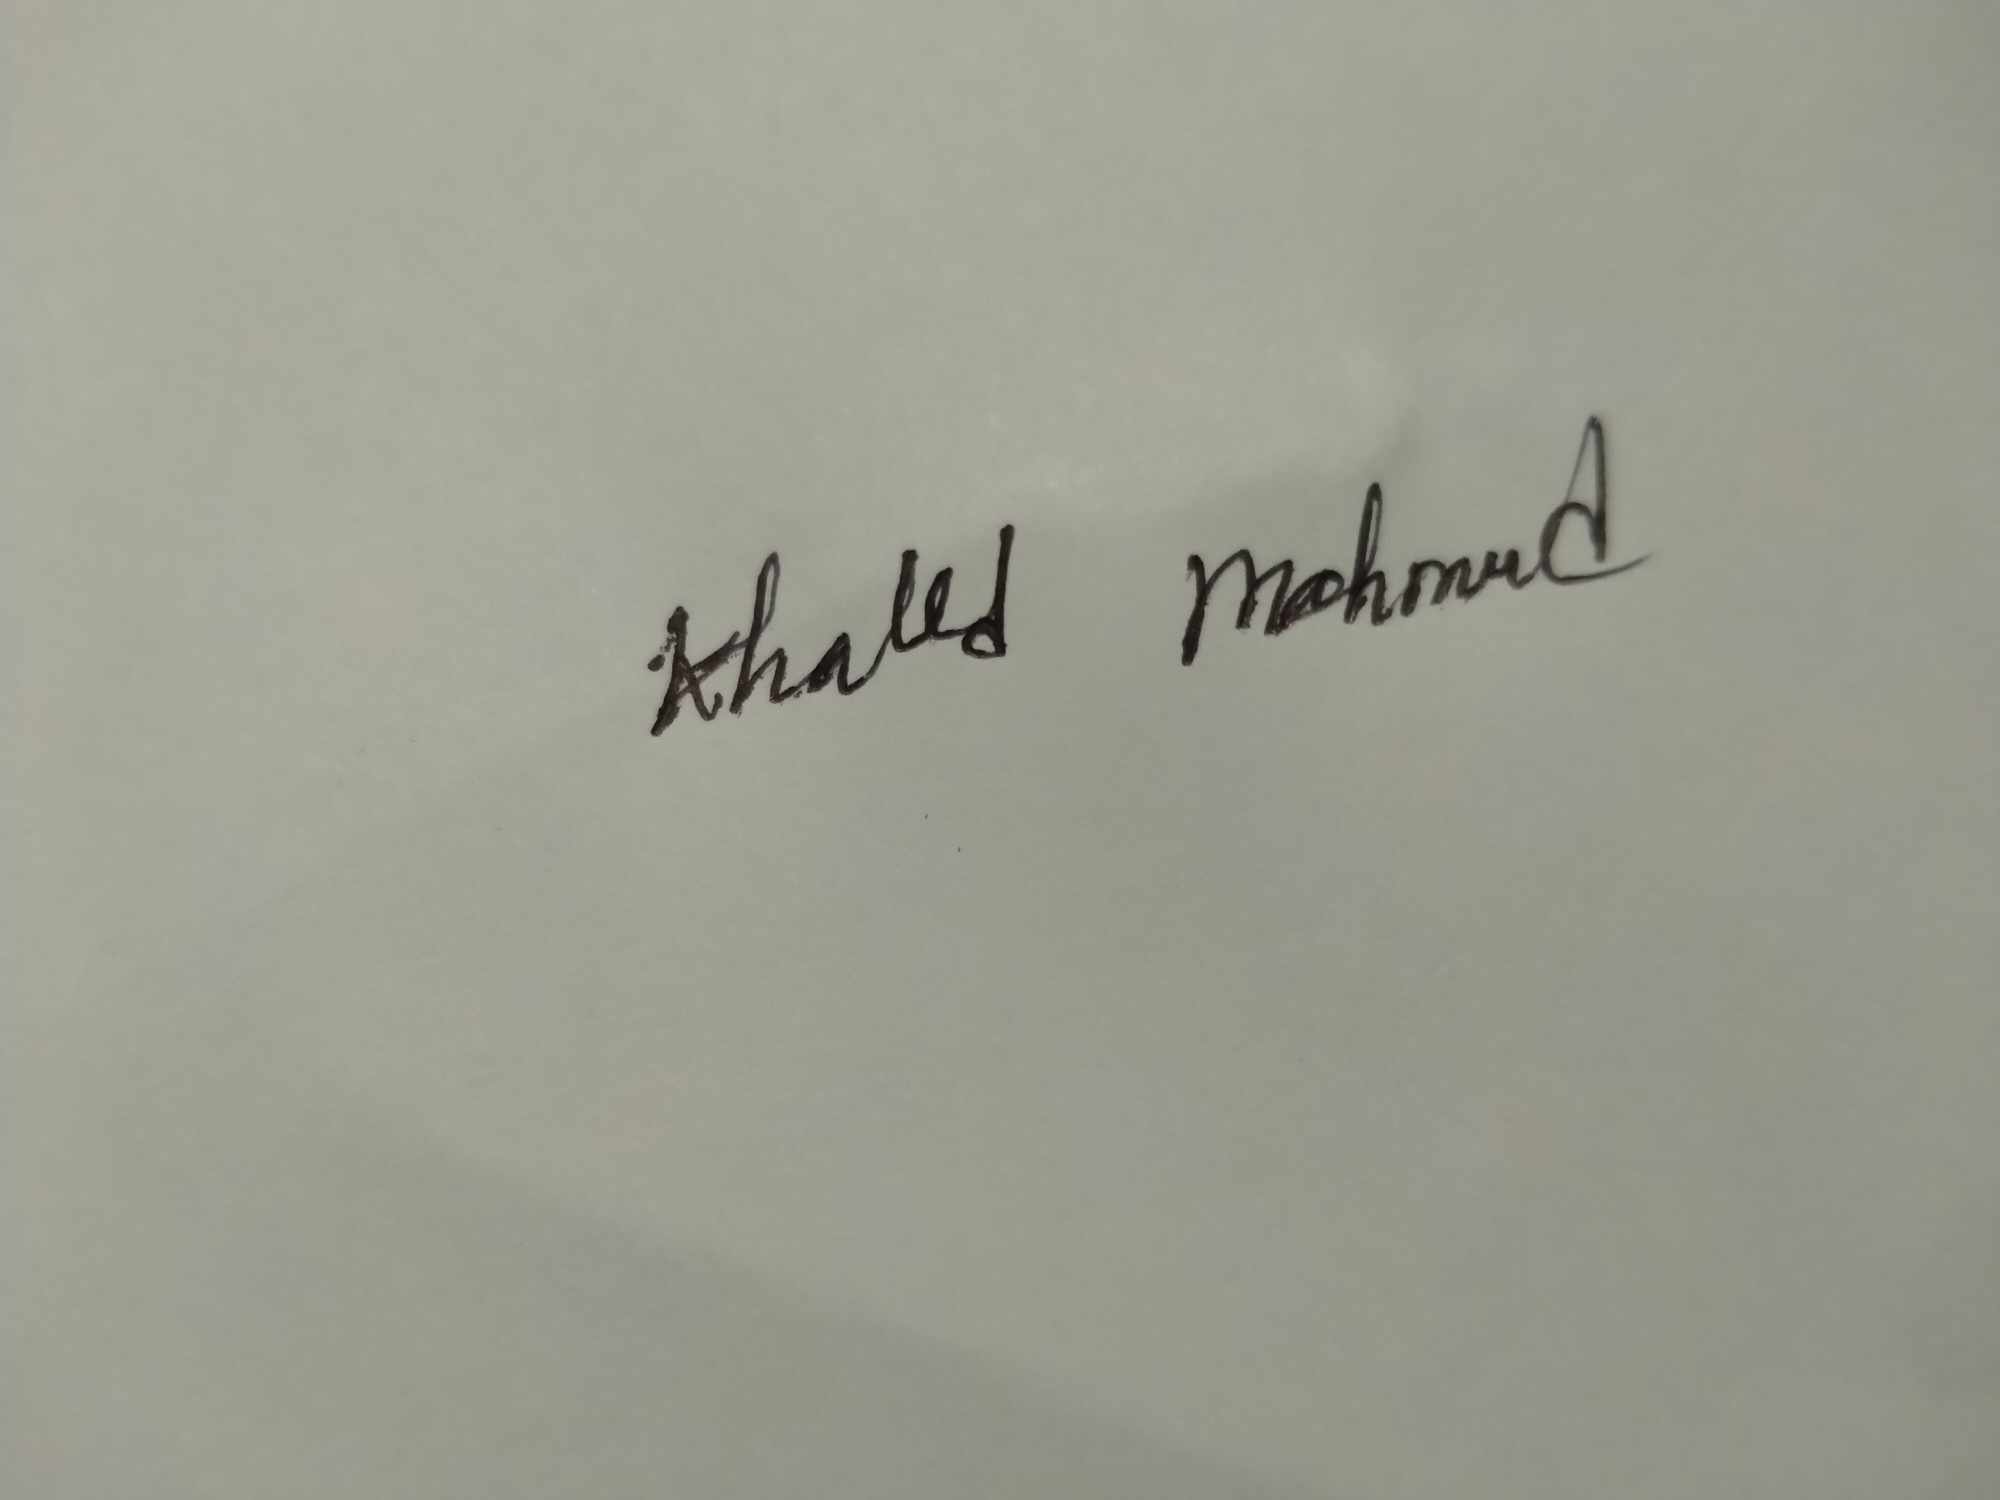 Khaled Mahmud